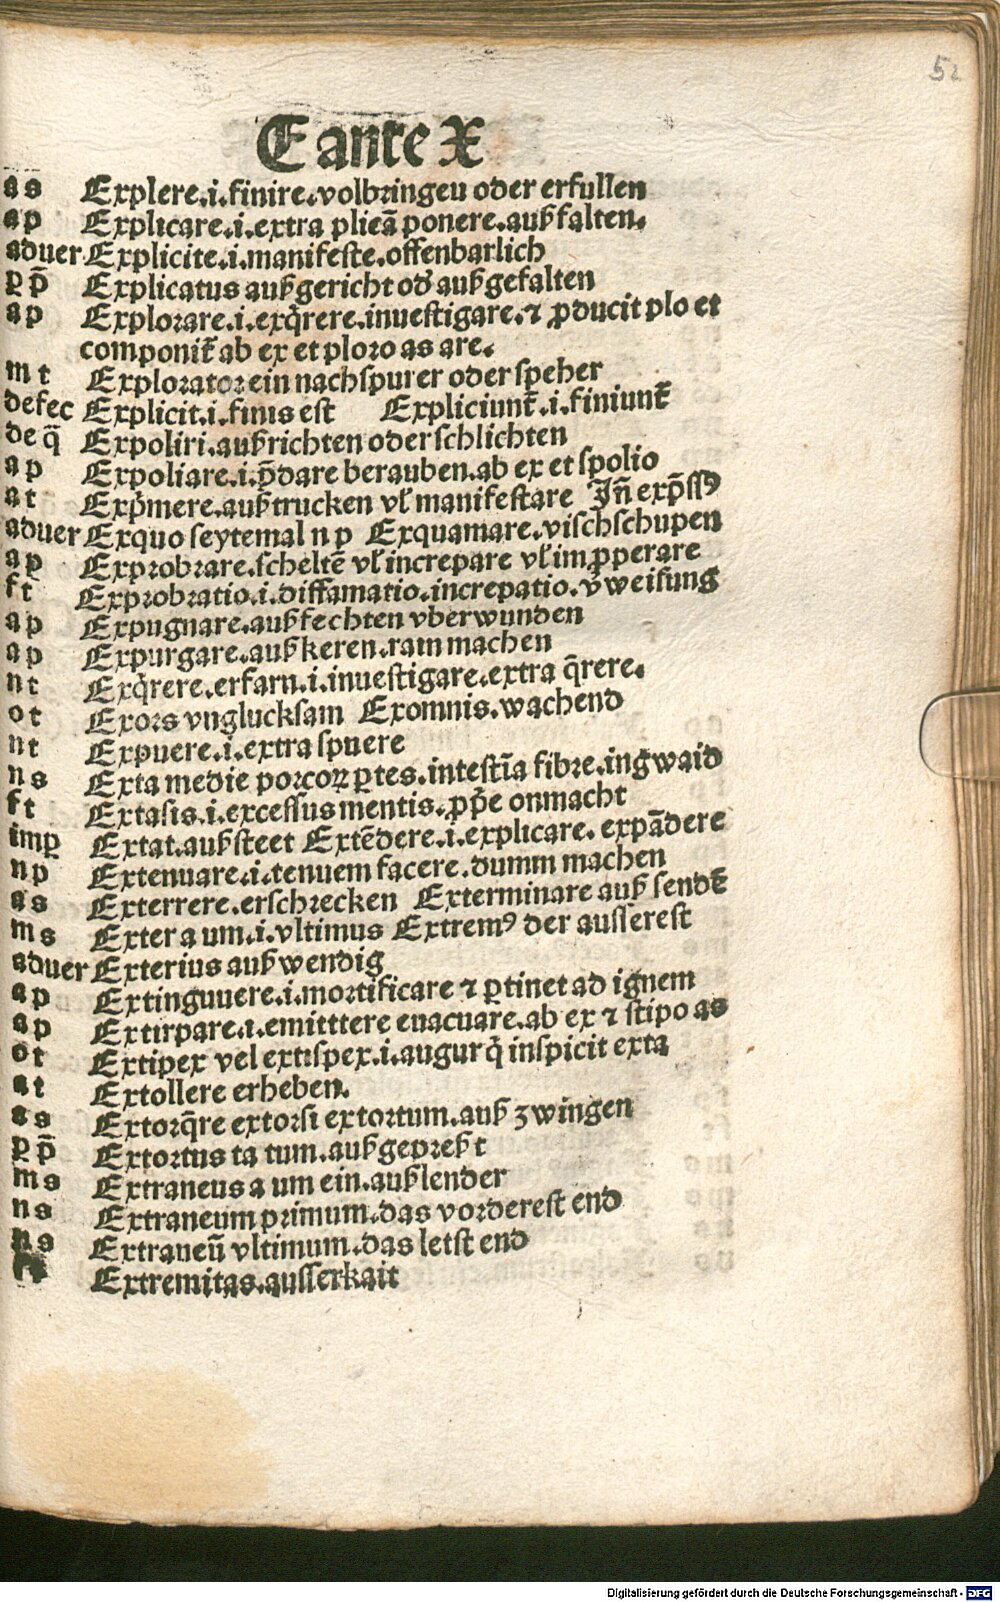 52
E ante X
as Explere.i.finire.volbringen oder erfullen
ap Explicare.i.extra plicā ponere.außfalten.
aduer Explicite.i.manifeste.offenbarlich
ꝑ p̄ Explicatus außgericht od' außgefalten
ap Explorare.i.exq̇rere.inuestigare.⁊ ꝓducit plo et
componit̃ ab ex et ploro as are.
mt Explorator ein nachspurer oder speher
defec Explicit.i.finis est Expliciunt̃.i.finiunt̃
de q̄ Expoliri.außrichten oder schlichten
ap Expoliare.i.p̄dare berauben.ab ex et spolio
at Exp̍mere.außtrucken vl' manifestare Jn̄ exp̄ssꝰ
aduer Exquo seytemal np Exquamare.vischschupen
ap Exprobrare.scheltē vl' increpare vl' imꝓperare
ft Exprobratio.i.diffamatio.increpatio.v̄weisung
ap Expugnare.außfechten vberwunden
ap Expurgare.außkeren.ram machen
nt Exq̇rere.erfarn.i.inuestigare.extra q̄rere.
ot Exors vnglucksam Exomnis.wachend
nt Expuere.i.extra spuere
ns Exta medie porcoꝝ ꝑtes.intestīa fibre.ingwaid
ft Extasis.i.excessus mentis.ꝓp̍e onmacht
imꝑ Extat.außsteet Extēdere.i.explicare.expādere
np Extenuare.i.tenuem facere.dumm machen
as Exterrere.erschrecken Exterminare auß sendē
ms Exter a um.i.vltimus Extremꝰ der ausserest
aduer Exterius außwendig
ap Extinguuere.i.mortificare ⁊ ꝑtinet ad ignem
ap Extirpare.i.emitttere euacuare.ab ex ⁊ stipo as
ot Extipex vel extispex.i.augur q̇ inspicit exta
at Extollere erheben.
as Extorq̄re extorsi extortum.auß zwingen
ꝑ p̄ Extortus ta tum.außgepreßt
ms Extraneus a um ein.außlender
ns Extraneum primum.das vorderest end
ns Extraneū vltimum.das letst end
Extremitas.ausserkait
Digitalisierung gefördert durch die Deutsche Forschungsgemeinschaft - DFG